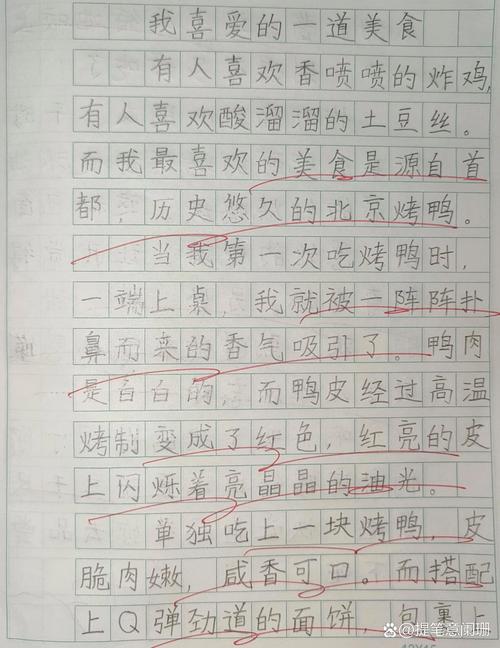 我喜爱的一道美食
有人喜欢香喷喷的炸鸡,
有人喜欢酸溜溜的土豆丝。
而我最喜欢的美食是源自首
都，历史悠久的北京烤鸭。
当我第一次吃烤鸭时,
一端上桌，我就被一阵阵扑
鼻而来的香气吸引了。鸭肉
是白白的，而鸭皮经过高温
烤制变成了红色，红亮的皮
上闪烁着亮晶晶的油光。
单独吃上一块烤鸭，皮
脆肉嫩，咸香可口。而搭配
上Q弹劲道的面饼，包裹上
@提笔意阑珊